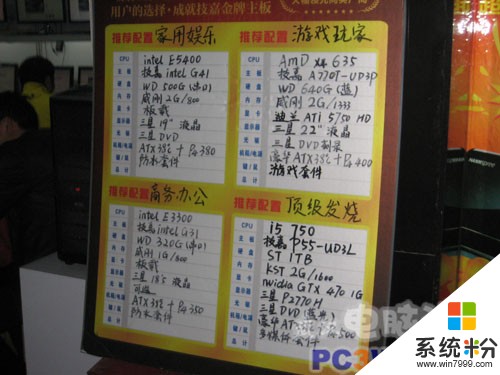 用户的选择·成就技嘉金牌主板
推荐配置 家用娱乐
CPU intel E5400
主板 技嘉 intel G41
硬盘 WD 500G
内存 威刚 2G/800
显卡 板载
显示器 三星 19" 液晶
光驱 三星 DVD
ATX 38℃ + P4 380
防水套件
推荐配置 游戏玩家
CPU AMD X4 635
主板 技嘉 A770T-UD3P
硬盘 WD 640G (蓝)
内存 威刚 2G/1333
显卡 迪兰 ATI 5750 HD
显示器 三星 22" 液晶
光驱 三星 DVD 刻录
豪华 ATX 38℃ + P4 400
游戏套件
推荐配置 商务办公
CPU intel E3300
主板 技嘉 intel G31
硬盘 WD 320G
内存 威刚 1G/800
显卡 板载
显示器 三星 18.5 液晶
光驱 可选
ATX 38℃ + P4 350
防水套件
推荐配置 顶级发烧
CPU i5 750
主板 技嘉 P55-UD3L
硬盘 ST 1TB
内存 KST 2G/1600
显卡 nvidia GTX 470 1G
显示器 三星 P2770H
光驱 三星 DVD
豪华 500
多媒体套件
电脑
PC3
系统粉
www.win7999.com